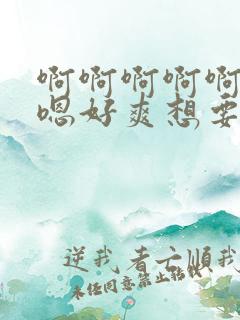 啊啊啊啊啊
嗯好爽想要
逆我者亡顺我
未经同意禁止转载